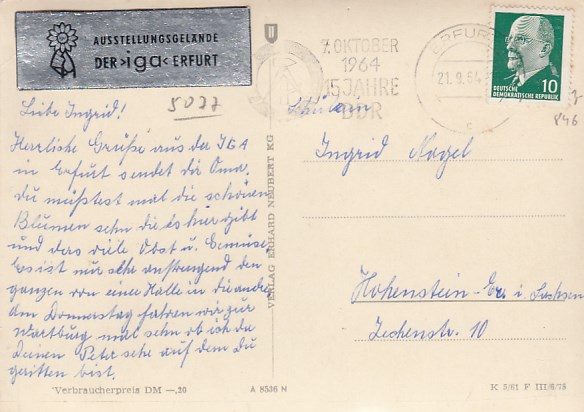 AUSSTELLUNGSGELÄNDE
DER >iga< ERFURT
5027
Liebe Ingrid!
Herrliche Grüße aus der IGA
in Erfurt sendet dir Oma.
Du müßtest mal die schönen
Blumen sehn die es hier gibt
und das viele Obst u. Gemüse.
Es ist nur sehr anstrengend den
ganzen von einer Halle in die andre
am Donnerstag fahren wir zur
Wartburg mal sehn ob ich da
Deinen Peter sehe auf dem Du
geritten bist.
Verbraucherpreis DM —,20
A 8536 N
VERLAG ERHARD NEUBERT KG
7. OKTOBER
1964
15 JAHRE
DDR
ERFURT
21.9.64
c
DEUTSCHE
DEMOKRATISCHE REPUBLIK
10
846
Schülerin
Ingrid Nagel
Hohenstein-Er. i Sachsen
Zechenstr. 10
K 5/61 F III/6/75